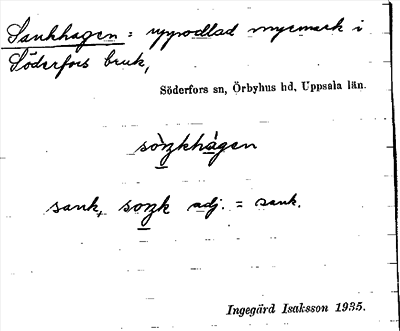 Sankhagen = uppodlad myrmark i
Söderfors bruk,
Söderfors sn, Örbyhus hd, Uppsala län.
sòŋkhàgen
sank, soŋk adj. = sank.
Ingegärd Isaksson 1935.